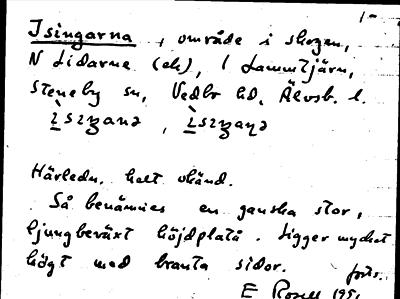 Isingarna, område i skogen,
N Lidarne (ek), l Lammtjärn,
Steneby sn, Vedbo hd, Älvsb. l.
ì̱sıŋana, ì̱sıŋaɳa
Härledn. helt okänd.
Så benämnes en ganska stor,
ljungbeväxt höjdplatå. Ligger mycket
högt med branta sidor. forts.
E Rosell 195